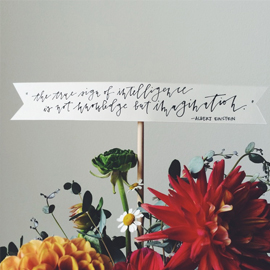 "the true sign of intelligence
is not knowledge but imagination."
-ALBERT EINSTEIN